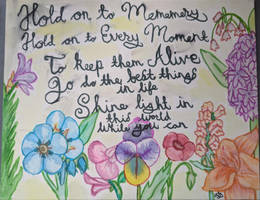 Hold on to Mememery
Hold on to Every Moment
To keep them Alive
Go do the best things
in life
Shine light in
this world
While you can